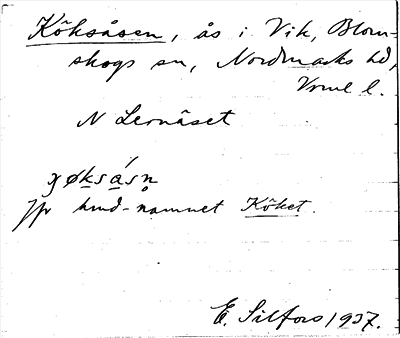 Köksåsen, ås i Vik, Blom-
skogs sn, Nordmarks hd,
Vrml l.
N Lernäset
jfr hmd-namnet Köket.
E. Silfors 1937.